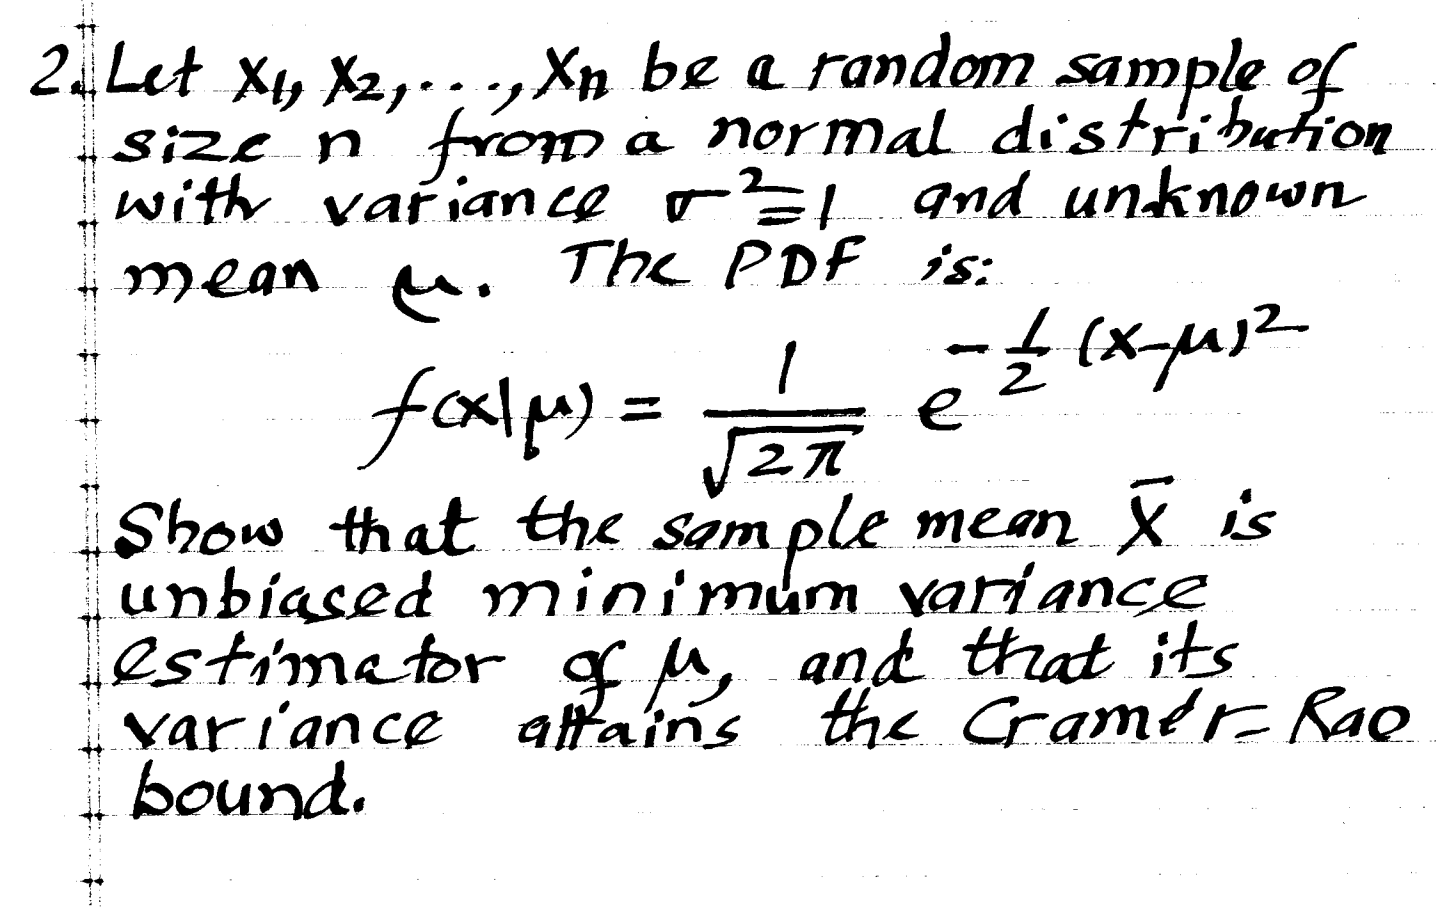 2. Let X₁, X₂, . . ., Xn be a random sample of
size n from a normal distribution
with variance σ² = 1 and unknown
mean μ. The PDF is:
f(x|μ) = 1/√2π e^-½(x-μ)²
Show that the sample mean X̄ is
unbiased minimum variance
estimator of μ, and that its
variance attains the Cramér-Rao
bound.